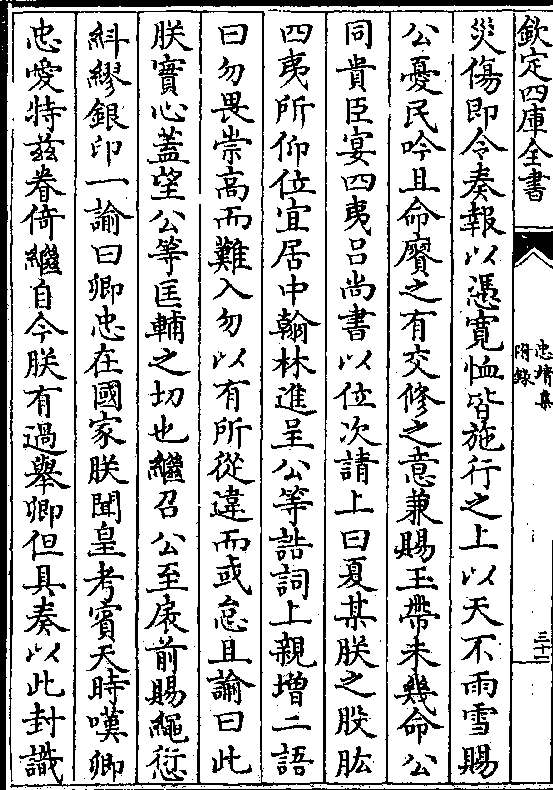 欽定四庫全書
忠靖集
附錄
三十二
災傷即令奏報以憑寛恤皆施行之上以天不雨雪賜
公憂民吟且命賡之有交修之意兼賜玉帶未幾命公
同貴臣宴四夷吕尚書以位次請上曰夏某朕之股肱
四夷所仰位宜居中翰林進呈公等誥詞上親増二語
曰勿畏崇髙而難入勿以有所從違而或怠且諭曰此
朕實心蓋望公等匡輔之切也繼召公至扆前賜繩愆
糾繆銀印一諭曰卿忠在國家朕聞皇考賓天時嘆卿
忠愛特兹眷倚繼自今朕有過舉卿但具奏以此封識